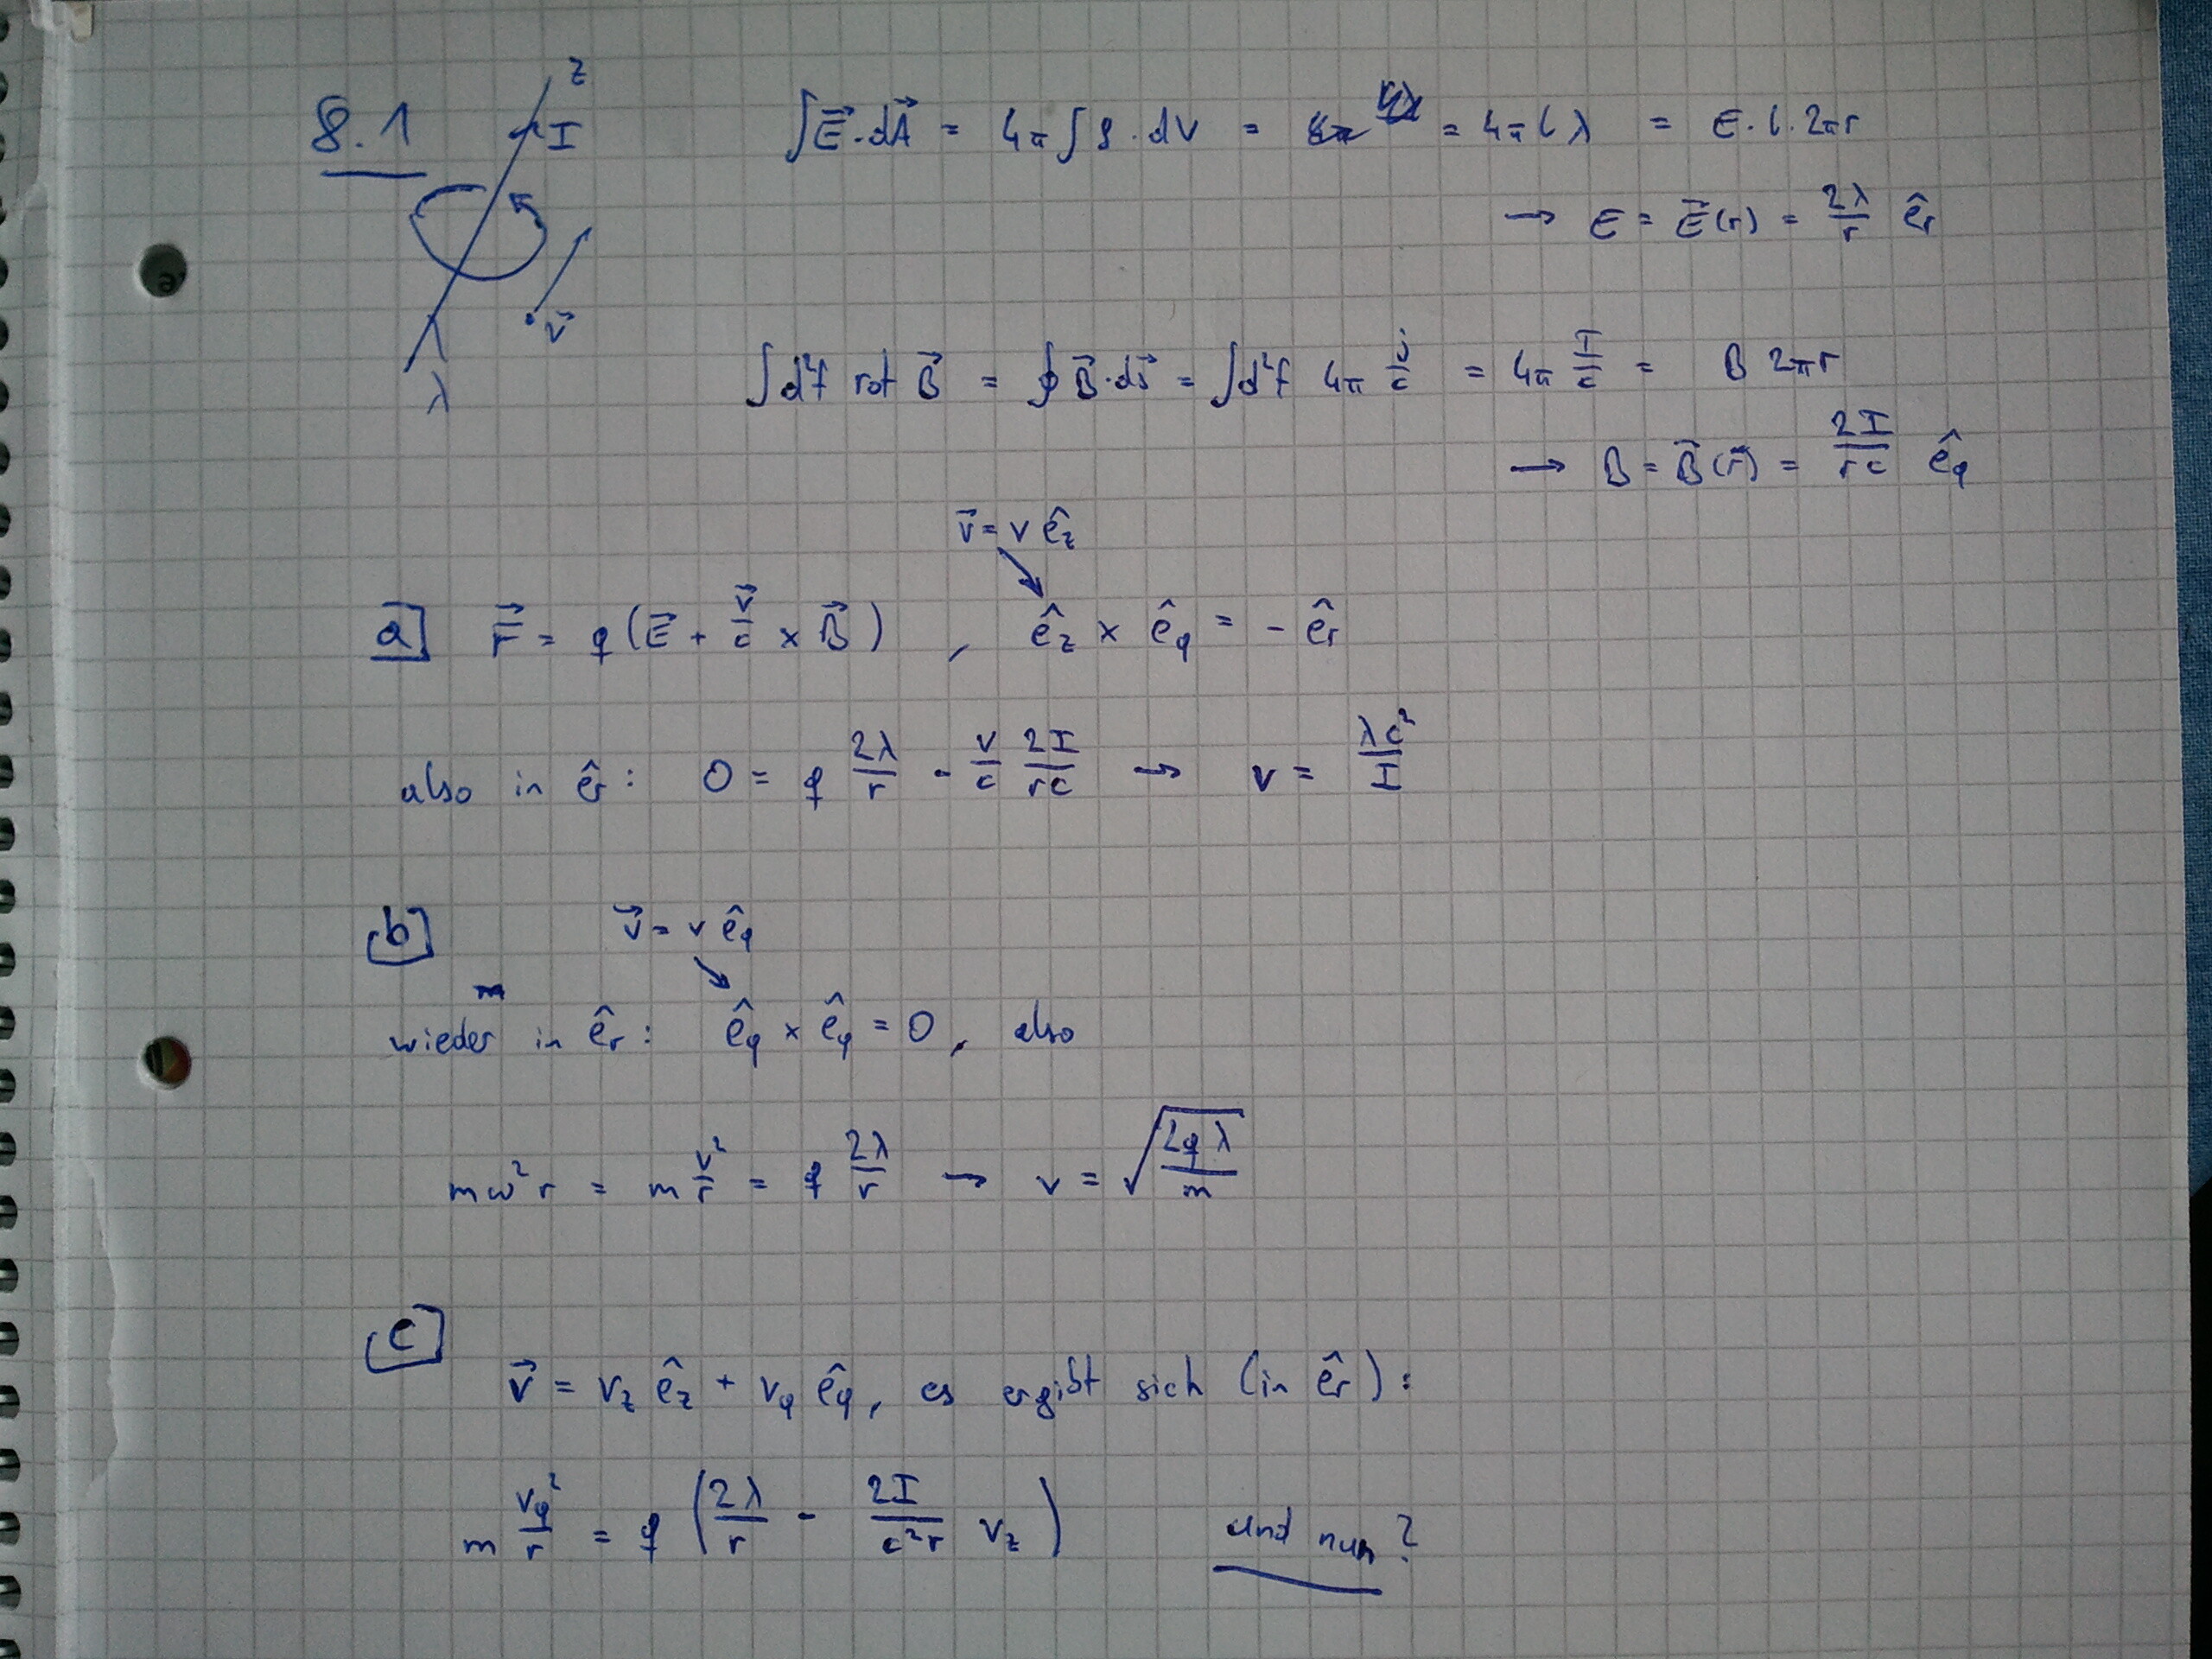 8.1
z
I
λ
v⃗
∫E⃗·dA⃗ = 4π∫ρ·dV = = 4π l λ = E·l·2πr
→ E = E⃗(r) = 2λ/r ê_r
∫d²f rot B⃗ = ∮B⃗·ds⃗ = ∫d²f 4π j/c = 4π I/c = B 2πr
→ B = B⃗(r⃗) = 2I/rc ê_φ
v⃗ = v ê_z
a] F⃗ = q(E⃗ + v⃗/c × B⃗) , ê_z × ê_φ = - ê_r
also in ê_r: 0 = q 2λ/r - v/c 2I/rc → v = λc²/I
b] v⃗ = v ê_φ
wieder in ê_r: ê_φ × ê_φ = 0, also
mω²r = m v²/r = q 2λ/r → v = √(2qλ/m)
c]
v⃗ = v_z ê_z + v_φ ê_φ, es ergibt sich (in ê_r):
m v_φ²/r = q (2λ/r - 2I/c²r v_z) und nun?